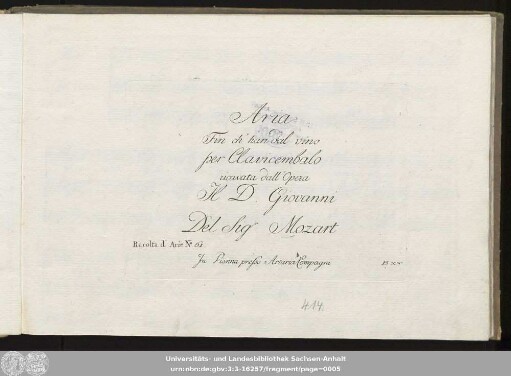 Aria
Fin ch'han dal vino
per Clavicembalo
ricavata dall'Opera
Il D. Giovanni
Del Sigr Mozart
Racolta d. Arie No.
In Vienna presso Artaria Compagni
414.
Universitäts- und Landesbibliothek Sachsen-Anhalt
urn:nbn:de:gbv:3:3-16257/fragment/page=0005